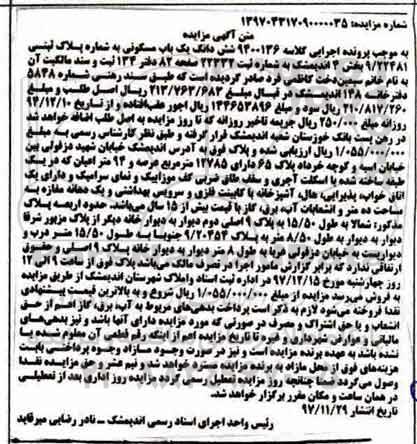 شماره مزایده: ۱۳۹۷۰۴۳۱۷۰۹۰۰۰۰۰۳۵
متن آگهی مزایده
به موجب پرونده اجرایی کلاسه ۹۴۰۰۱۳۶ شش دانگ یک باب مسکونی به شماره پلاک ثبتی
۹/۲۲۴۸۱ بخش ۴ اندیمشک به شماره ثبت ۲۲۳۳۲ صفحه ۸۲ دفتر ۱۳۴ ثبت و سند مالکیت آن
به نام خانم سیمین‌دخت کاظمی فرد صادر گردیده است که طبق سند رهنی شماره ۵۸۴۸
دفترخانه ۱۴۸ اندیمشک در قبال مبلغ ۲۱۳/۷۶۳/۶۸۳ ریال اصل طلب و مبلغ
۲۱۰/۸۱۷/۲۶۰ ریال سود و مبلغ ۱۴۴۶۵۳۸۹۶ ریال اجور عقب‌افتاده و از تاریخ ۹۴/۱۲/۱۰
روزانه مبلغ ۲۵۰/۰۰۰ ریال جریمه تاخیر روزانه که تا روز مزایده به اصل طلب اضافه خواهد شد
در رهن پست بانک خوزستان شعبه اندیمشک قرار گرفته و طبق نظر کارشناس رسمی به مبلغ
۱/۰۵۵/۰۰۰/۰۰۰ ریال ارزیابی شده و پلاک فوق به آدرس اندیمشک خیابان شهید دزفولی بین
خیابان امید و کوچه خرداد پلاک ۶۵ دارای ۱۲۷۸۵ مترمربع عرصه و ۹۴ متر اعیان که در یک
طبقه ساخته شده با اسکلت آجری و سقف طاق ضربی کف موزاییک و نمای سرامیک و دارای یک
اتاق خواب، پذیرایی، هال، آشپزخانه با کابینت فلزی و سرویس بهداشتی و یک دهانه مغازه به
مساحت ده متر و انشعابات آب، برق، گاز با قدمت بیش از ۱۵ سال می‌باشد. حدود اربعه پلاک
مذکور: شمالا به طول ۱۵/۵۰ به پلاک ۹ اصلی دوم دیوار به دیوار خانه دیگر از پلاک مزبور شرقا
دیوار به دیوار به طول ۸/۵۰ متر به پلاک ۹/۲۰۴۵۴ جنوبا به طول ۱۵/۵۰ متر درب و
دیواریست به خیابان دزفولی غربا به طول ۸ متر دیوار به دیوار خانه پلاک ۹ اصلی و حقوق
ارتفاقی ندارد که برابر گزارش مامور اجرا در تصرف مالک می‌باشد پلاک فوق از ساعت ۹ الی ۱۲
روز چهارشنبه مورخ ۹۷/۱۲/۱۵ در اداره ثبت اسناد و املاک شهرستان اندیمشک از طریق مزایده
به فروش می‌رسد مزایده از مبلغ ۱/۰۵۵/۰۰۰/۰۰۰ ریال شروع و به بالاترین قیمت پیشنهادی
نقدا فروخته می‌شود لازم به ذکر است پرداخت بدهی‌های مربوط به آب، برق، گاز اعم از حق
انشعاب و یا حق اشتراک و مصرف در صورتی که مورد مزایده دارای آنها باشد و نیز بدهی‌های
مالیاتی و عوارض شهرداری و غیره تا تاریخ مزایده اعم از اینکه رقم قطعی آن معلوم شده یا
نشده باشد به عهده برنده مزایده است و نیز در صورت وجود مازاد وجوه پرداختی بابت
هزینه‌های فوق از محل مازاد به برنده مزایده مسترد خواهد شد و نیم عشر و حق مزایده نقدا
وصول می‌گردد ضمنا چنانچه روز مزایده تعطیل رسمی گردد مزایده روز اداری بعد از تعطیلی
در همان ساعت و مکان مقرر برگزار خواهد شد.
تاریخ انتشار ۹۷/۱۱/۲۹
رئیس واحد اجرای اسناد رسمی اندیمشک ـ نادر رضایی میرقاید